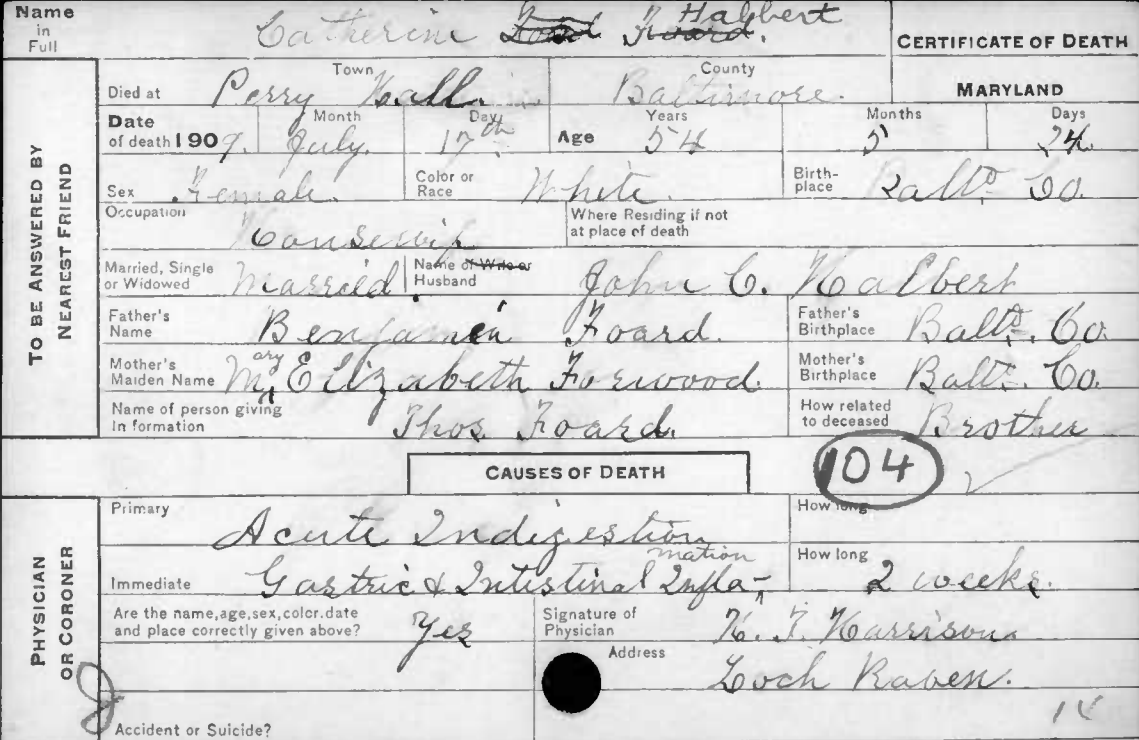 Name in Full Catherine Foard Foard. Halbert
CERTIFICATE OF DEATH
TO BE ANSWERED BY NEAREST FRIEND
Died at Perry Hall. Town Baltimore. County MARYLAND
Date of death 1909. Month July. Day 17th Age Years 54 Months 5 Days 24.
Sex Female. Color or Race White. Birth-place Balto. Co.
Occupation Housewife Where Residing if not at place of death
Married, Single or Widowed Married. Name of Wife or Husband John C. Halbert
Father's Name Benjamin Foard. Father's Birthplace Balto. Co.
Mother's Maiden Name Mary Elizabeth Forwood. Mother's Birthplace Balto. Co.
Name of person giving In formation Thos. Foard. How related to deceased Brother
CAUSES OF DEATH 104
PHYSICIAN OR CORONER
Primary Acute Indigestion How long
Immediate Gastric & Intestinal Inflammation How long 2 weeks.
Are the name,age,sex,color.date and place correctly given above? Yes Signature of Physician H. F. Harrison
Address Loch Raven.
Accident or Suicide?